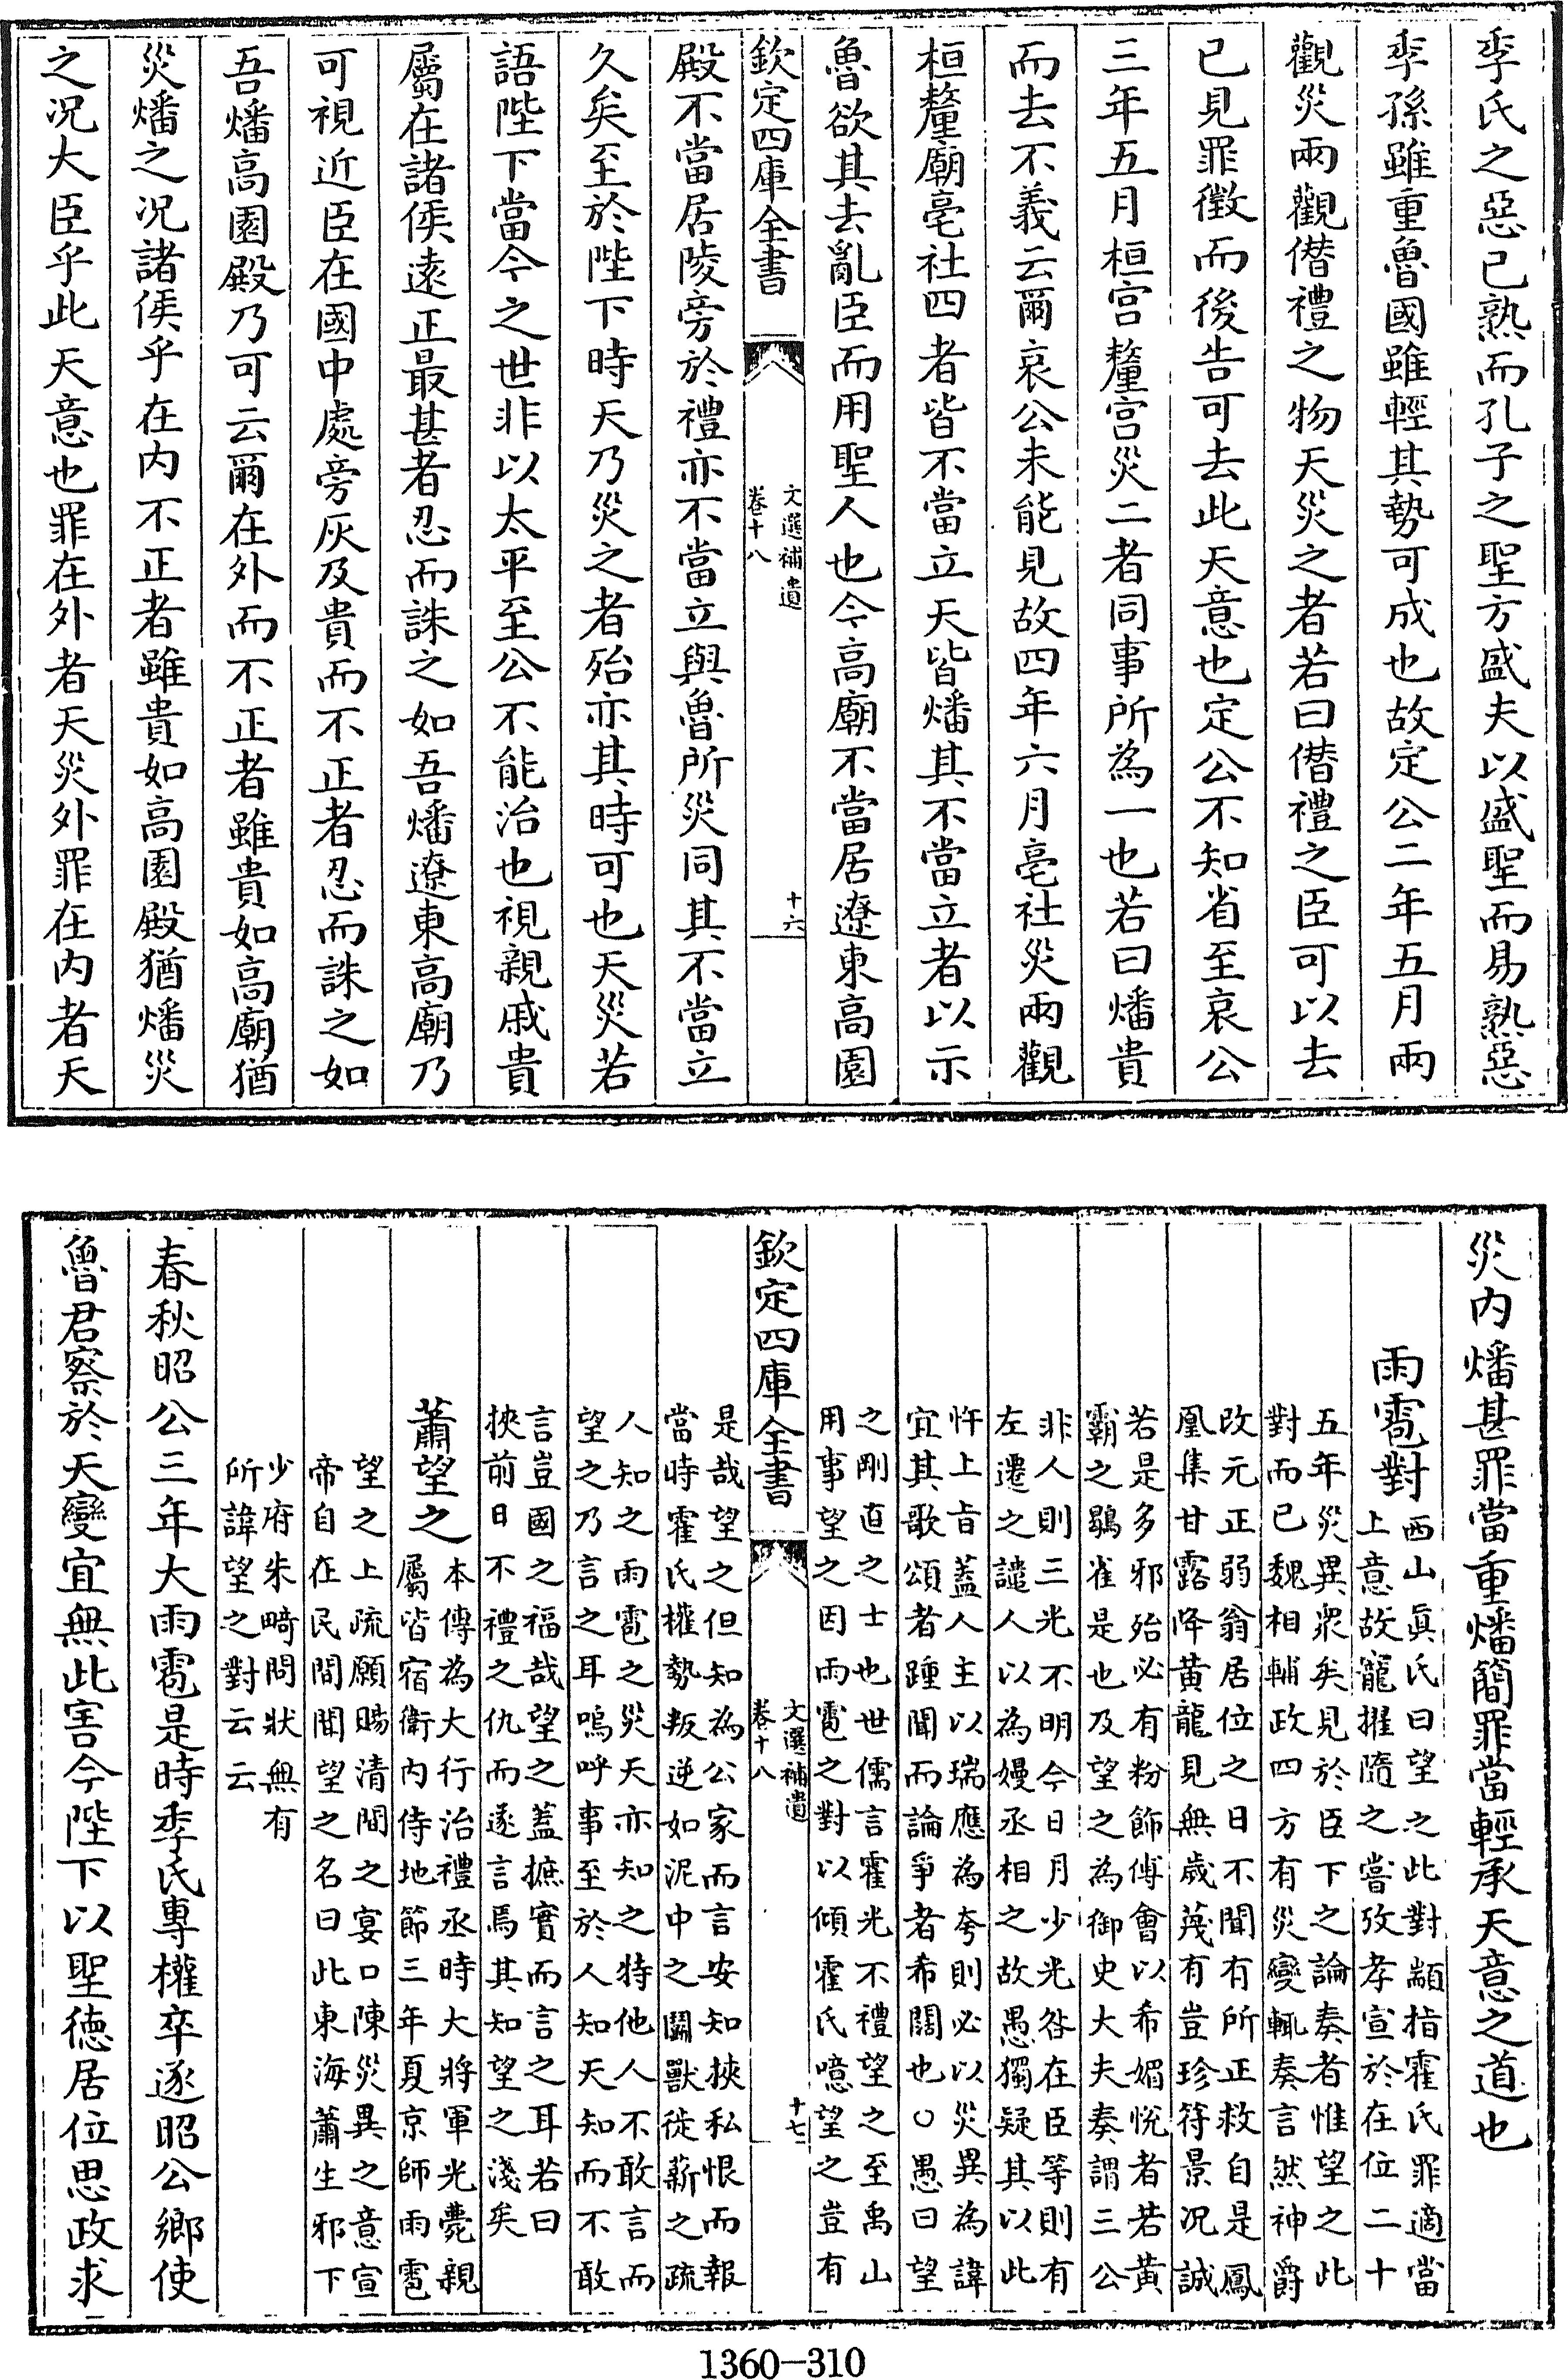 季氏之惡已熟而孔子之聖方盛夫以盛聖而易熟惡
季孫雖重魯國雖輕其勢可成也故定公二年五月兩
觀災兩觀僭禮之物天災之者若曰僭禮之臣可以去
已見罪徵而後告可去此天意也定公不知省至哀公
三年五月桓宮釐宮災二者同事所為一也若曰燔貴
而去不義云爾哀公未能見故四年六月亳社災兩觀
桓釐廟亳社四者皆不當立天皆燔其不當立者以示
魯欲其去亂臣而用聖人也今高廟不當居遼東高園
欽定四庫全書
文選補遺
卷十八
十六
殿不當居陵旁於禮亦不當立與魯所災同其不當立
久矣至於陛下時天乃災之者殆亦其時可也天災若
語陛下當今之世非以太平至公不能治也視親戚貴
屬在諸侯遠正最甚者忍而誅之如吾燔遼東高廟乃
可視近臣在國中處旁灰及貴而不正者忍而誅之如
吾燔高園殿乃可云爾在外而不正者雖貴如高廟猶
災燔之況諸侯乎在內不正者雖貴如高園殿猶燔災
之況大臣乎此天意也罪在外者天災外罪在內者天
災內燔甚罪當重燔簡罪當輕承天意之道也
雨雹對
西山真氏曰望之此對顓指霍氏罪適當
上意故寵擢隨之嘗攷孝宣於在位二十
五年災異衆矣見於臣下之論奏者惟望之此
對而已魏相輔政四方有災變輒奏言然神爵
改元正弱翁居位之日不聞有所正救自是鳳
凰集甘露降黃龍見無歲蔑有豈珍符景況誠
若是多邪殆必有粉飾傅會以希媚悅者若黃
霸之鶡雀是也及望之為御史大夫奏謂三公
非人則三光不明今日月少光咎在臣等則有
左遷之譴人以為嫚丞相之故愚獨疑其以此
忤上旨蓋人主以瑞應為夸則必以災異為諱
宜其歌頌者踵聞而論爭者希闊也○愚曰望
之剛直之士也世儒言霍光不禮望之至禹山
用事望之因雨雹之對以傾霍氏噫望之豈有
欽定四庫全書
文選補遺
卷十八
十七
是哉望之但知為公家而言安知挾私恨而報
當時霍氏權勢叛逆如泥中之鬭獸徙薪之疏
人知之雨雹之災天亦知之特他人不敢言而
望之乃言之耳嗚呼事至於人知天知而不敢
言豈國之福哉望之蓋摭實而言之耳若曰
挾前日不禮之仇而遂言焉其知望之淺矣
蕭望之
本傳為大行治禮丞時大將軍光薨親
屬皆宿衛內侍地節三年夏京師雨雹
望之上疏願賜清閒之宴口陳災異之意宣
帝自在民間聞望之名曰此東海蕭生邪下
少府朱畸問狀無有
所諱望之對云云
春秋昭公三年大雨雹是時季氏專權卒逐昭公鄉使
魯君察於天變宜無此害今陛下以聖德居位思政求
1360-310